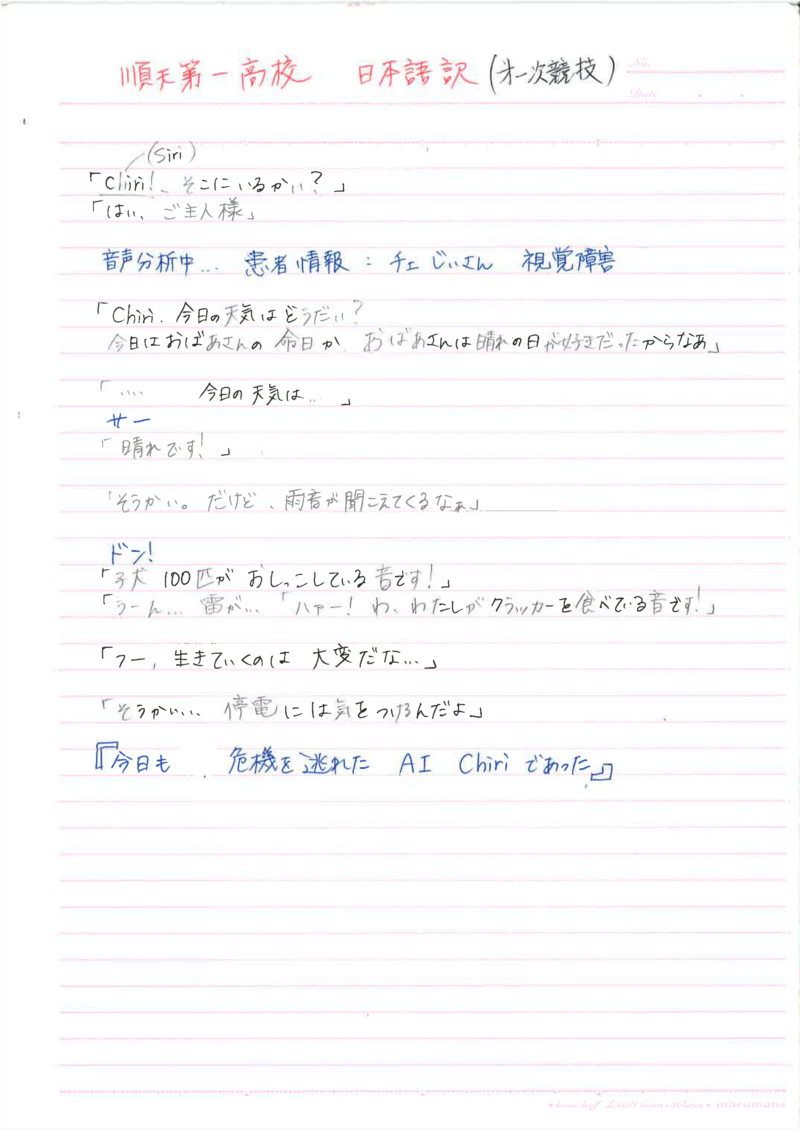 順天第一高校 日本語訳(オ一次競技)
No.
Date
(Siri)
「Chiri!、そこにいるかい？」
「はい、ご主人様」
音声分析中... 患者情報：チェじいさん 視覚障害
「Chiri. 今日の天気はどうだい？
今日はおばあさんの命日か、おばあさんは晴れの日が好きだったからなあ」
「.... 今日の天気は... 」
サー
「晴れです！」
「そうかい。だけど、雨音が聞こえてくるなぁ」
ドン！
「子犬 100匹が おしっこしている音です！」
「うーん... 雷が... 「ハァー！わ、わたしがクラッカーを食べている音です！」
「フー, 生きていくのは 大変だな...」
「そうかい... 停電には気をつけるんだよ」
『今日も 危機を逃れた AI Chiri であった』
marumans